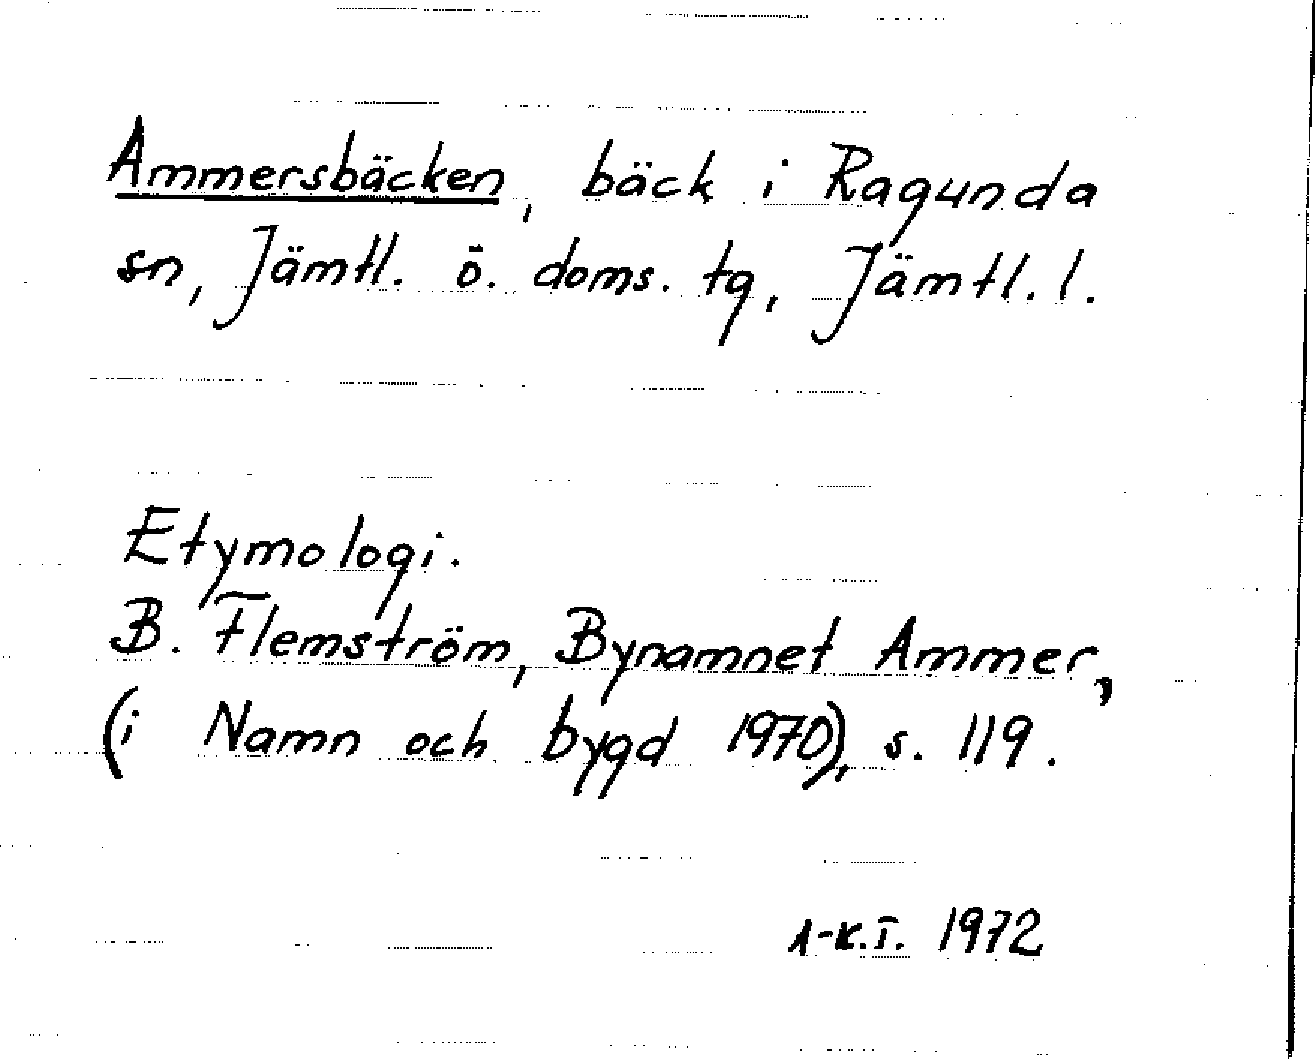 Ammersbäcken, bäck i Ragunda
sn, Jämtl. ö. doms. tg, Jämtl. l.
Etymologi.
B. Flemström, Bynamnet Ammer,
(i Namn och bygd 1970), s. 119.
1972